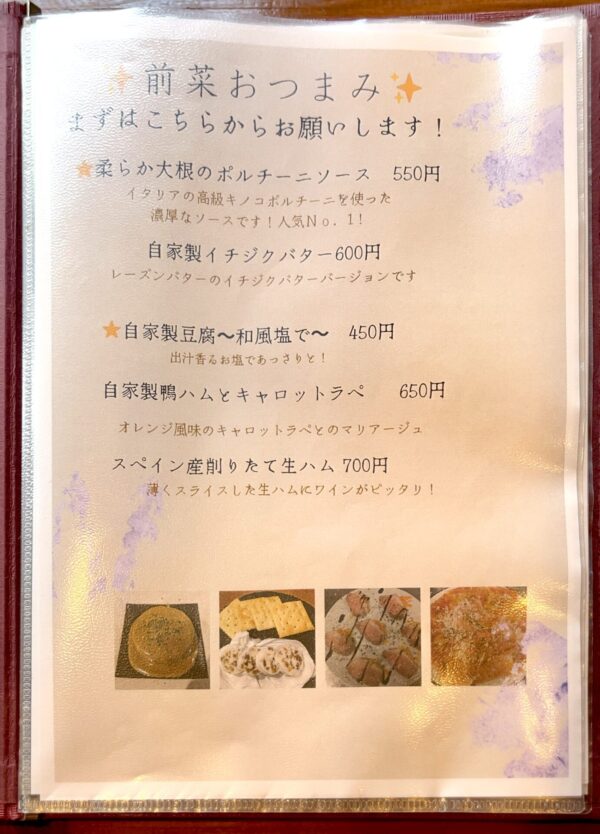 ✨前菜おつまみ✨
まずはこちらからお願いします！
★柔らか大根のポルチーニソース 550円
イタリアの高級キノコポルチーニを使った
濃厚なソースです！人気No.1！
自家製イチジクバター600円
レーズンバターのイチジクバターバージョンです
★自家製豆腐〜和風塩で〜 450円
出汁香るお塩であっさりと！
自家製鴨ハムとキャロットラペ 650円
オレンジ風味のキャロットラペとのマリアージュ
スペイン産削りたて生ハム 700円
薄くスライスした生ハムにワインがピッタリ！